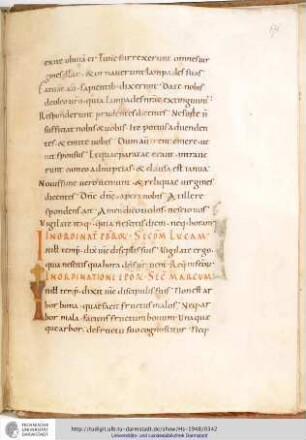 exite obuia ei Tunc surrexerunt omnes uir
gines illae & ornauerunt lampades suas
Fatuae sapientib; dixerunt Date nobis
de oleo uro quia lampades nrae extinguunt
Responderunt prudentes dicentes Ne forte n
sufficiat nobis & uobis Ite potius ad uenden
tes & emite uobis Dum aut irent emere ue
nit sponsus Et quae paratae erant intraue
runt cum eo ad nuptias & clausa est ianua
Nouissime uero ueniunt & reliquae uirgines
dicentes Dne dne aperi nobis At ille re
spondens ait Amen dico uobis nescio uos
Uigilate itaq; quia nescitis diem neq; horam
IN ORDINAT EBROR SEC LUCAM
In ill temp dix ihc discipulis suis Uigilate ergo
quia nescitis qua hora
IN ORDINATIONE SEC MARCUM
In ill temp dixit ihc discipulis suis Non est ar
bor bona quae facit fructus malos Neq; ar
bor mala faciens fructum bonum Unaquae
que arbor de fructu suo cognoscitur Neq;
TECHNISCHE
UNIVERSITÄT
DARMSTADT
http://tudigit.ulb.tu-darmstadt.de/show/Hs-1948/0342
Universitäts- und Landesbibliothek Darmstadt